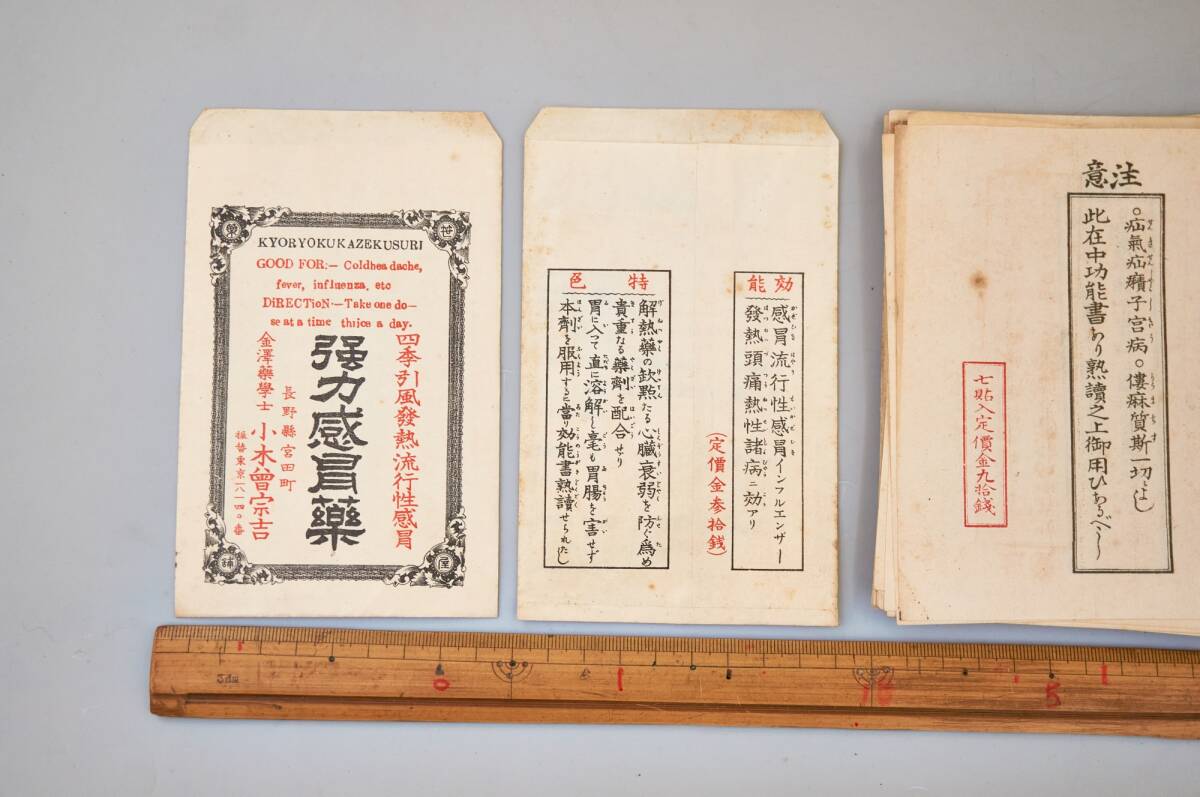 笹
榮
屋
舖
KYORYOKUKAZEKUSURI
GOOD FOR:— Coldheadache,
fever, influenza, etc
DiRECTiON:—Take one do—
se at a time thrice a day.
四季引風發熱流行性感冐
强力感冐藥
長野縣宮田町
金澤藥學士 小木曾宗吉
振替東京一八一四〇番
効能
感冐流行性感冐インフルエンザー
發熱頭痛熱性諸病ニ効アリ
(定價金參拾錢)
特色
解熱藥の欽㸃たる心臟衰弱を防ぐ爲め
貴重なる藥劑を配合せり
胃に入つて直に溶解し毫も胃腸を害せず
本劑を服用するに當り効能書熟讀せられたし
注意
○疝氣疝癪子宮病○僂麻質斯一切によし
此在中功能書あり熟讀之上御用ひあるべし
七貼入定價金九拾錢